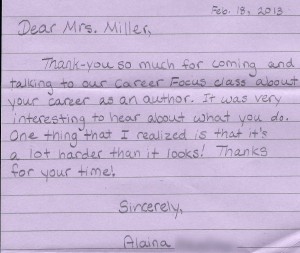 Feb. 18, 2013
Dear Mrs. Miller,
Thank-you so much for coming and
talking to our Career Focus class about
your career as an author. It was very
interesting to hear about what you do.
One thing that I realized is that it's
a lot harder than it looks! Thanks
for your time!
Sincerely,
Alaina